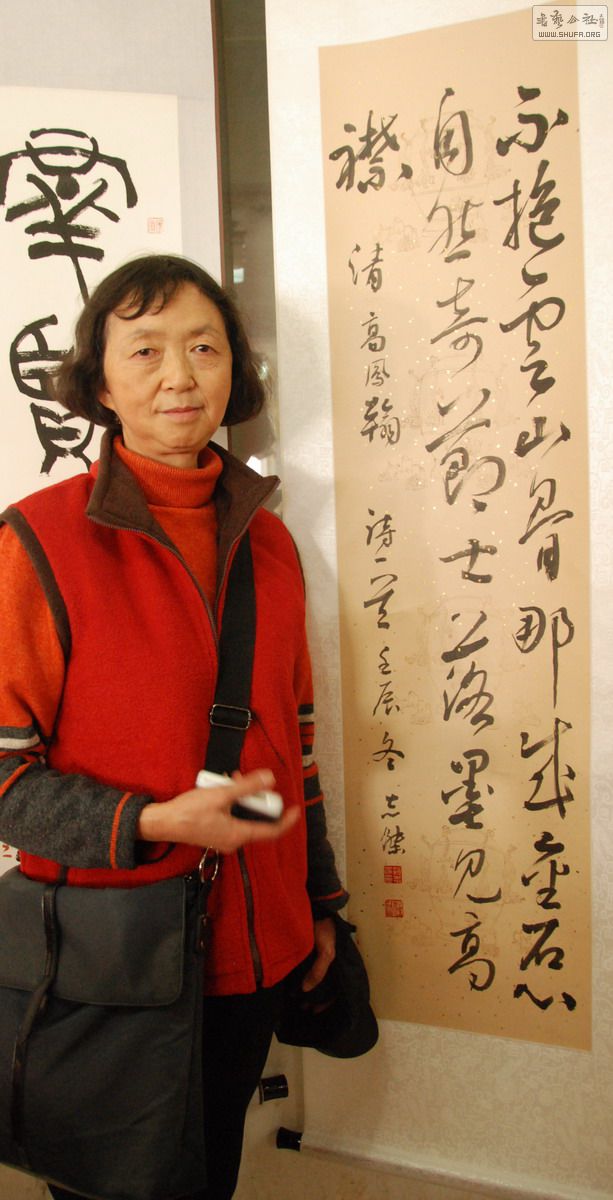 不抱雲山骨那成金石心
自然奇節士落墨見高
襟 清 高鳳翰 詩一首 壬辰冬 志傑
羣賢
書藝公社
WWW.SHUFA.ORG